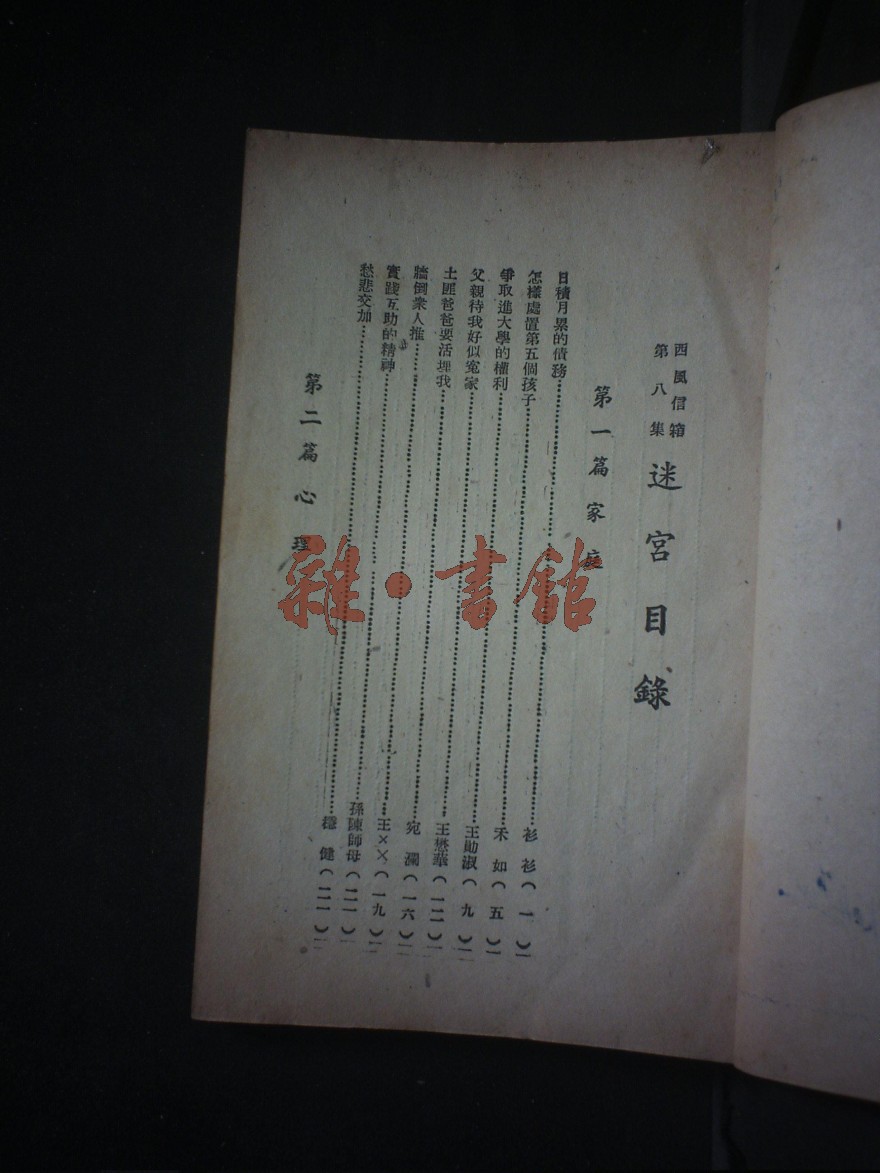 西風信箱
第八集
迷宮目錄
第一篇 家庭
日積月累的債務……衫衫(一)
怎樣處置第五個孩子……禾如(五)
爭取進大學的權利……王勛淑(九)
父親待我好似寃家……王懋華(一二)
土匪爸爸要活埋我……宛瀾(一六)
牆倒衆人推……王××(一九)
實踐互助的精神……孫陳師母(二一)
愁悲交加……穩健
第二篇 心理
雜·書館